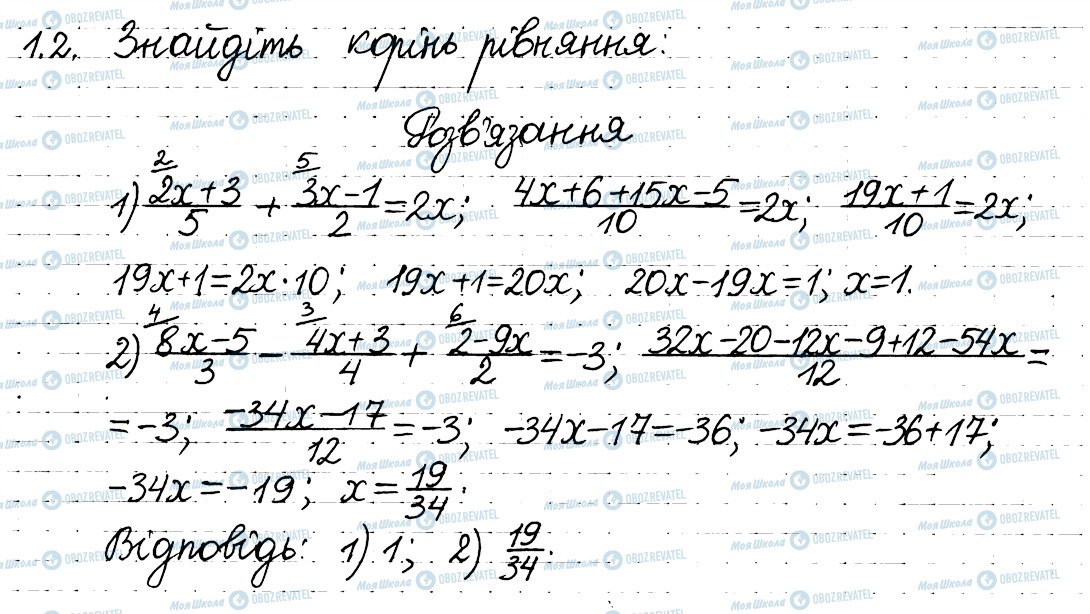 1.2. Знайдіть корінь рівняння:
Розв'язання
1) (2x+3)/5 (2) + (3x-1)/2 (5) = 2x; (4x+6+15x-5)/10 = 2x; (19x+1)/10 = 2x;
19x+1=2x·10; 19x+1=20x; 20x-19x=1; x=1.
2) (8x-5)/3 (4) - (4x+3)/4 (3) + (2-9x)/2 (6) = -3; (32x-20-12x-9+12-54x)/12 =
= -3; (-34x-17)/12 = -3; -34x-17=-36; -34x=-36+17;
-34x=-19; x=19/34.
Відповідь: 1) 1; 2) 19/34.
МояШкола OBOZREVATEL